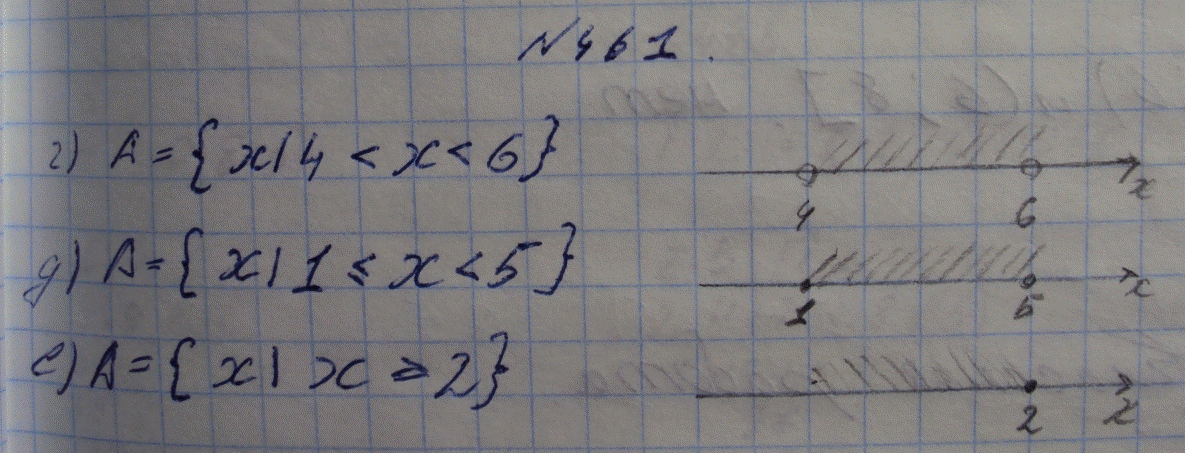 №461.
г) A = {x | 4 < x < 6}
x
4 6
д) A = {x | 1 ≤ x < 5}
x
1 5
е) A = {x | x ≥ 2}
x
2